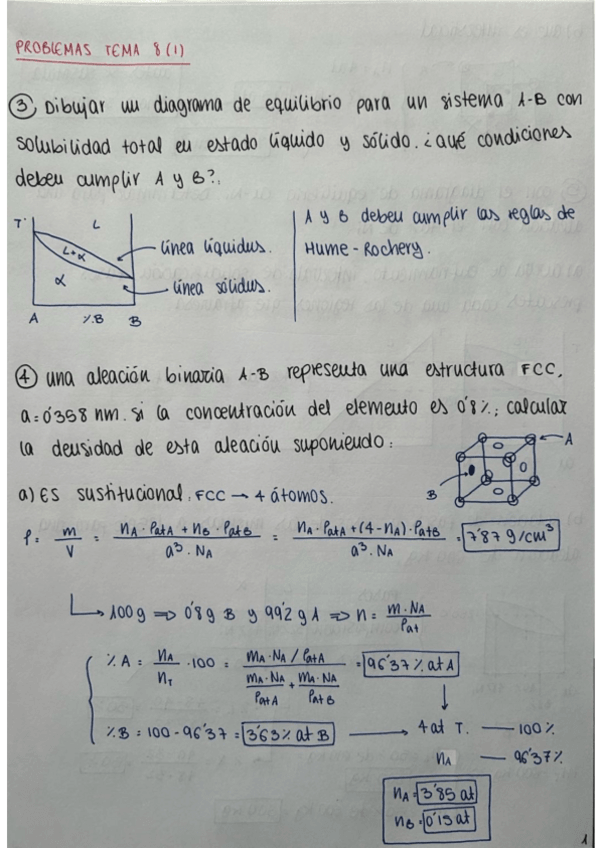 PROBLEMAS TEMA 8 (1)
③ Dibujar un diagrama de equilibrio para un sistema A-B con
solubilidad total en estado líquido y sólido. ¿Qué condiciones
deben cumplir A y B?.
T°
L
L+α
α
A
%B
B
línea líquidus.
línea sólidus.
A y B deben cumplir las reglas de
Hume-Rochery.
④ una aleación binaria A-B representa una estructura FCC,
a=0'358 nm. si la concentración del elemento es 0'8%; calcular
la densidad de esta aleación suponiendo:
A
B
a) Es sustitucional. FCC → 4 átomos.
ρ = m/V = (nA · PatA + nB · PatB)/(a³ · NA) = (nA · PatA + (4-nA) · PatB)/(a³ · NA) = 7'87 g/cm³
→ 100g ⇒ 0'8g B y 99'2 g A ⇒ n = (m · NA)/Pat
% A = nA/nT · 100 = (mA · NA / PatA)/(mA · NA/PatA + mA · NA/PatB) = 96'37 % at A
% B = 100 - 96'37 = 3'63 % at B → 4 at T. — 100%
nA — 96'37%
nA = 3'85 at
nB = 0'15 at
1